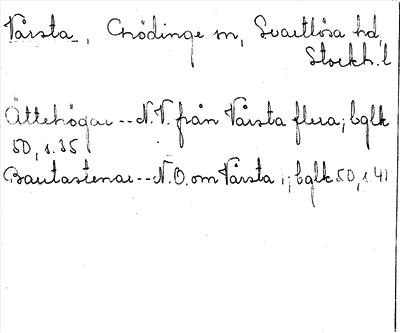 Vårsta, Grödinge sn, Svartlösa hd,
Stockh. l
Ättehögar -- N.V. från Vårsta flera; bglk
50, s. 35
Bautastenar -- N.O. om Vårsta ; bglk 50, s. 41